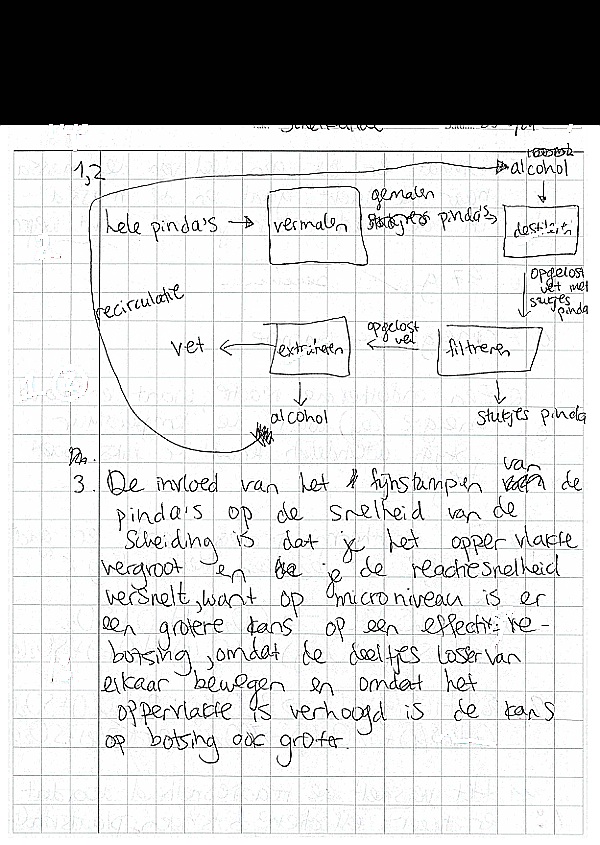 1,2
alcohol
hele pinda's
vermalen
gemalen
pinda's
destilleren
opgelost
vet met
stukjes
pinda
recirculatie
vet
extraheren
opgelost
vet
filtreren
alcohol
stukjes pinda
3. De invloed van het fijnstampen van de
pinda's op de snelheid van de
scheiding is dat je het oppervlakte
vergroot en je de reactiesnelheid
versnelt, want op microniveau is er
een grotere kans op een effectieve
botsing, omdat de deeltjes losser van
elkaar bewegen en omdat het
oppervlakte is verhoogd is de kans
op botsing ook groter.